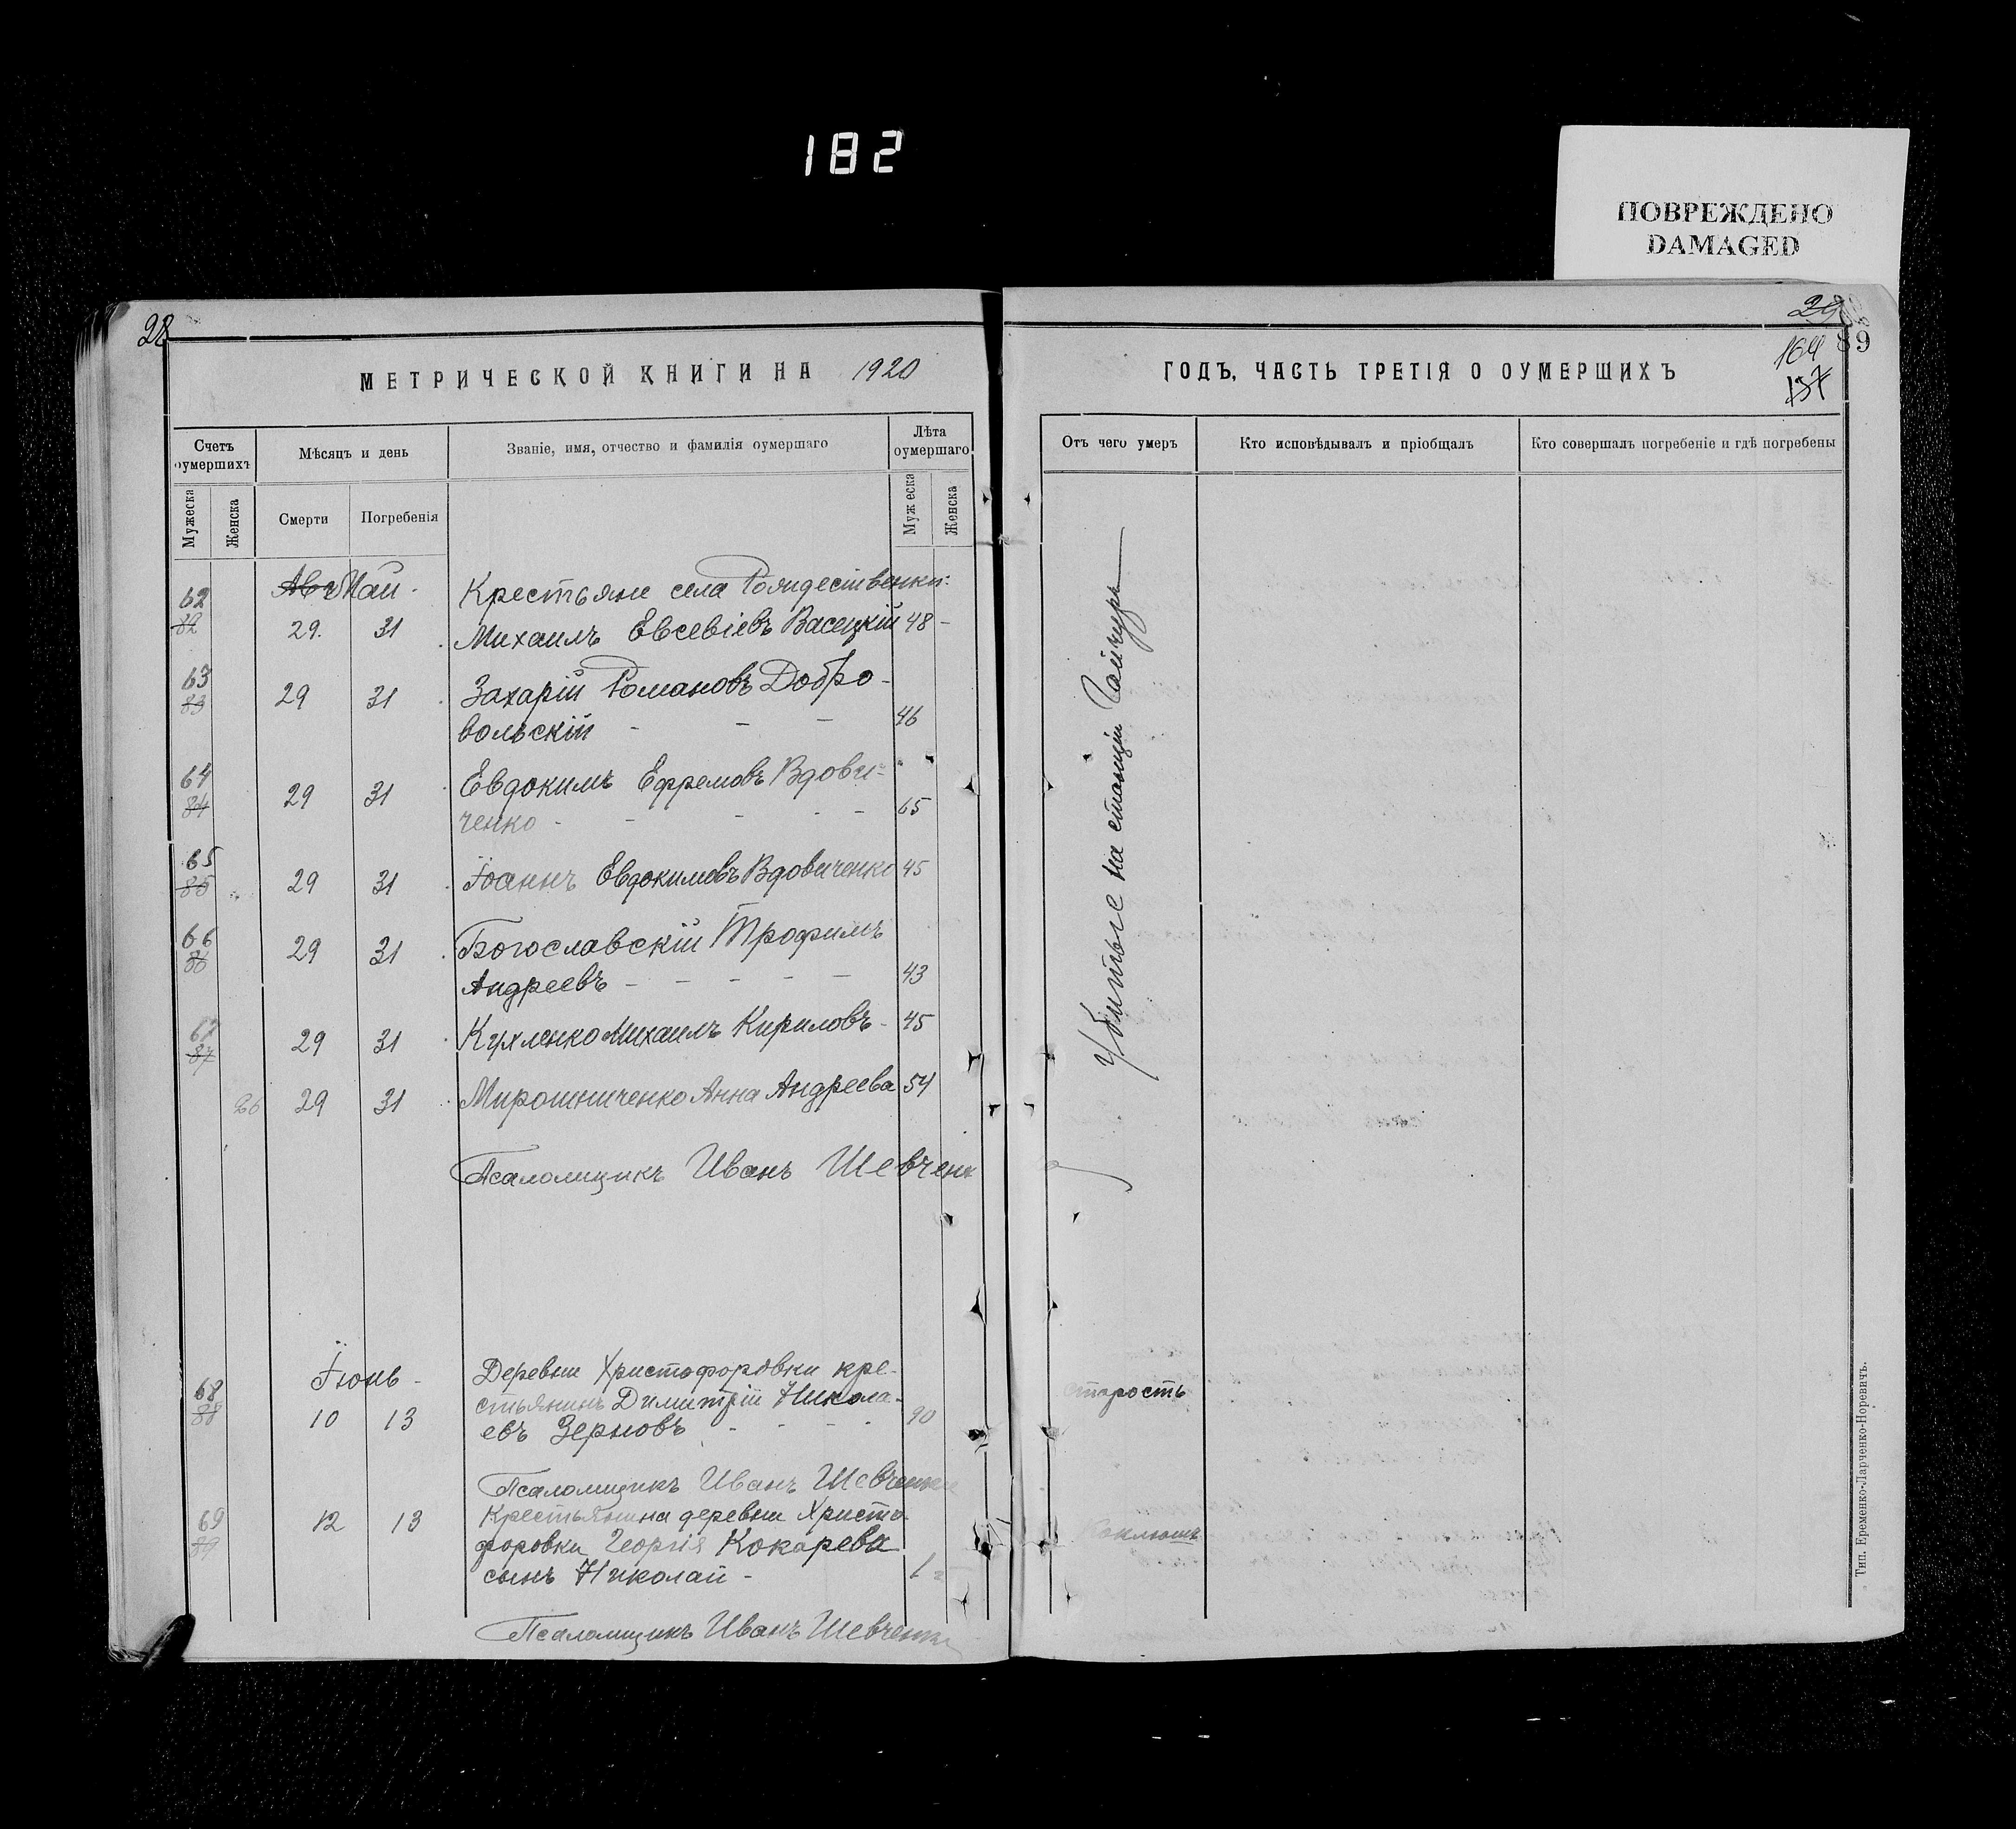 182
ПОВРЕЖДЕНО
DAMAGED
28
29
89
164
137
МЕТРИЧЕСКОЙ КНИГИ НА 1920
ГОДЪ, ЧАСТЬ ТРЕТІЯ О ОУМЕРШИХЪ
Счетъ оумершихъ
Мѣсяцъ и день
Званіе, имя, отчество и фамилія оумершаго
Лѣта оумершаго
Мужеска
Женска
Смерти
Погребенія
Муж еска
Женска
Отъ чего умеръ
Кто исповѣдывалъ и пріобщалъ
Кто совершалъ погребеніе и гдѣ погребены
Май
Крестьяне села Рождественки:
62
82
29. 31 Михаилъ Евсевіевъ Васецкій 48
63
83
29 31 Захарій Романовъ Добро-
вольскій 46
64
84
29 31 Евдокимъ Ефремовъ Вдови-
ченко 65
65
85
29 31 Іоаннъ Евдокимовъ Вдовиченко 45
66
86
29 31 Богославскій Трофимъ
Андреевъ 43
67
87
29 31 Кухленко Михаилъ Кириловъ 45
26 29 31 Мирошниченко Анна Андреева 54
Убитые на станціи Гайчуръ
Псаломщикъ Иванъ Шевченк
Іюнь
Деревни Христофоровки кре-
68
88
10 13
стьянинъ Димитрій Никола-
евъ Зерновъ 90
старость
Псаломщикъ Иванъ Шевченко
69
89
12 13
Крестьянина деревни Христо-
форовки Георгія Кокарева
сынъ Николай 1
Коклюшъ
Псаломщикъ Иванъ Шевченко
Тип. Еременко-Ларченко-Норевичъ.